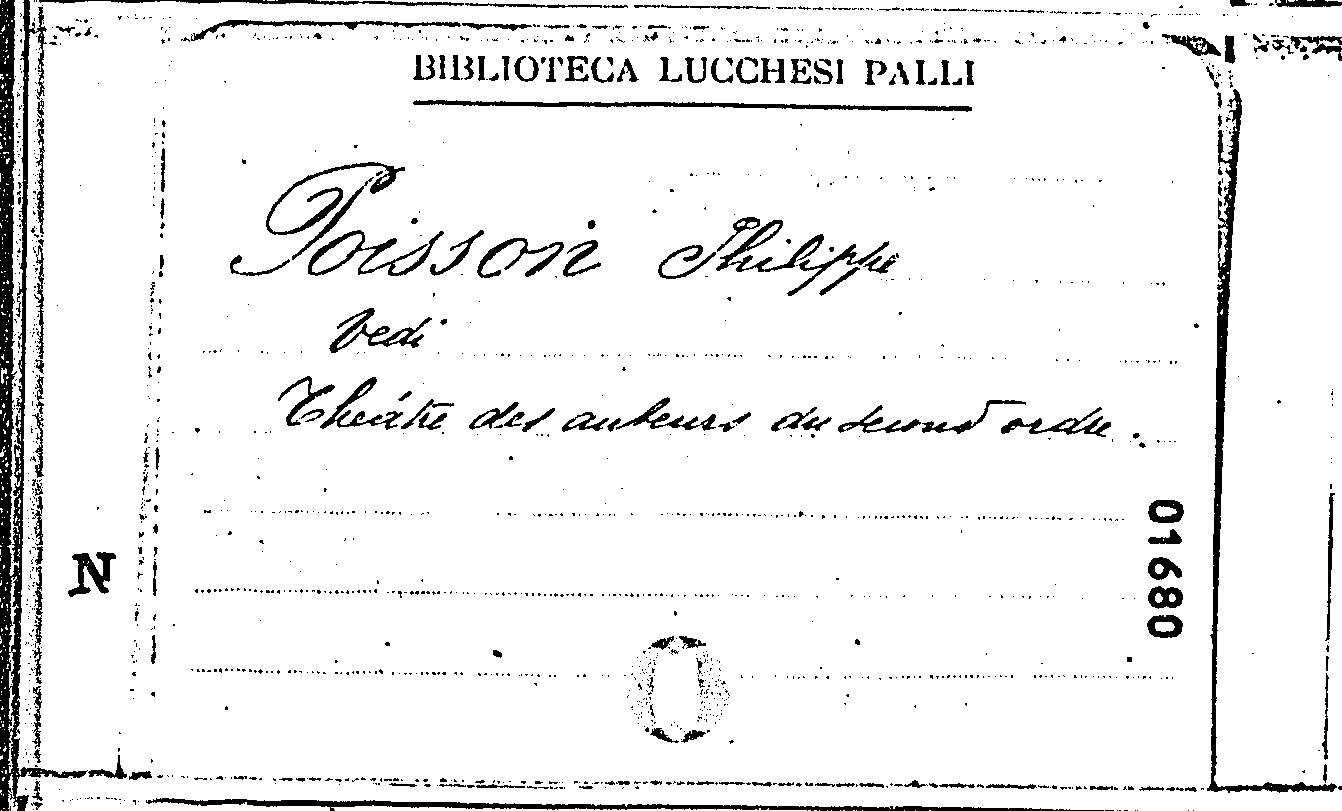 BIBLIOTECA LUCCHESI PALLI
Poisson Philippe
Vedi
Theátre des auteurs du second ordre.
01680
N